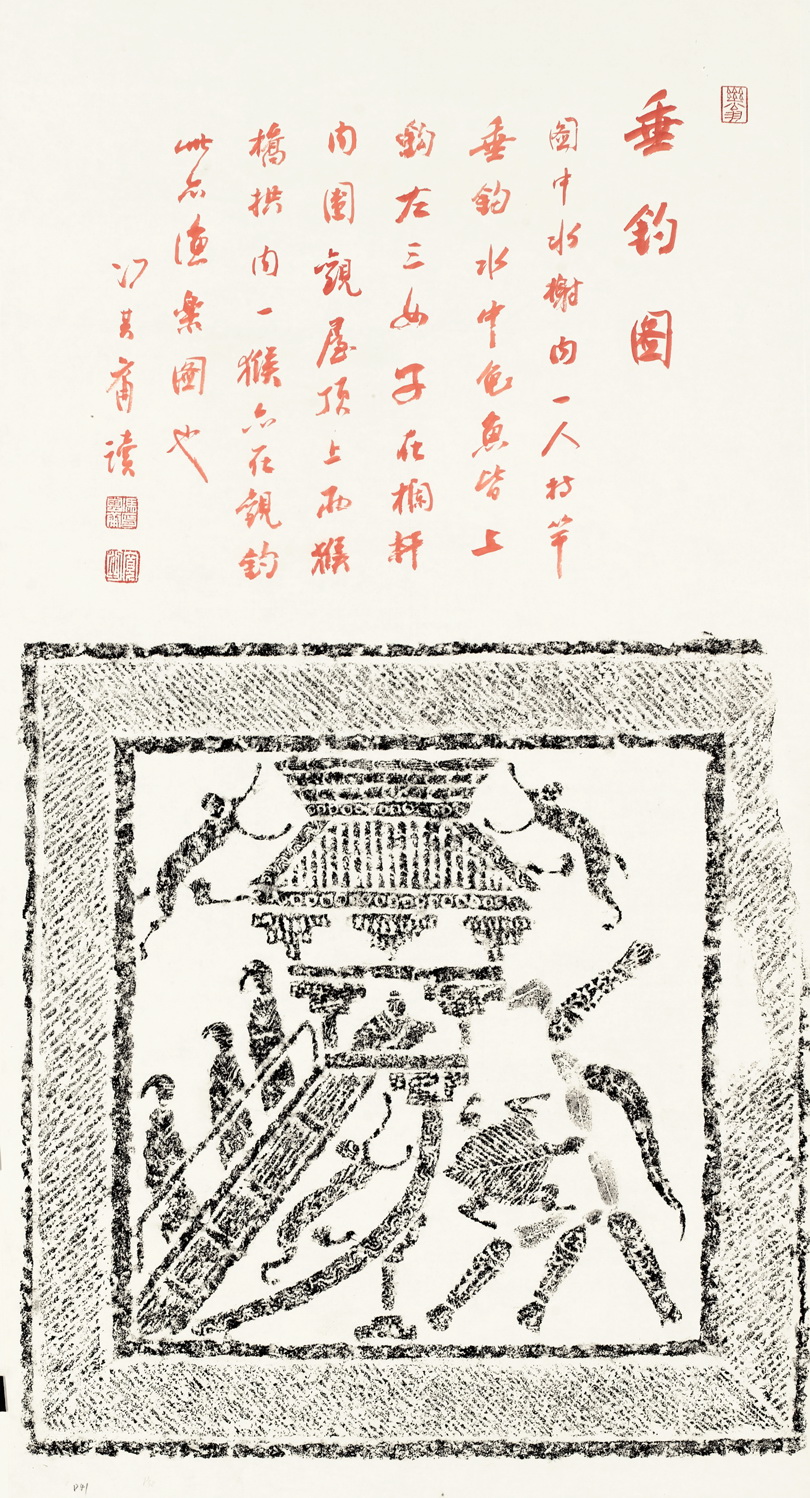 垂釣圖
圖中水榭内一人持竿
垂釣水中龟魚皆上
鈎左三女子在欄軒
内圍觀屋頂上两猴
橋拱内一猴亦在觀釣
此亦漁樂圖也
冯其庸读